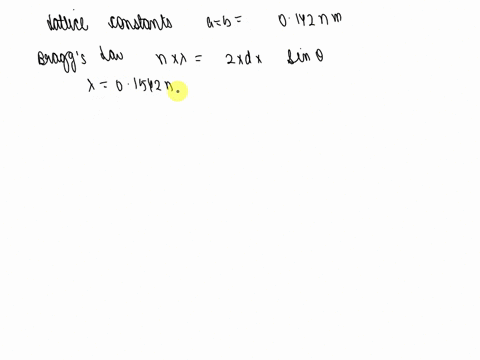 lattice constants a=b= 0.142nm
Bragg's law n×λ= 2×d× Sinθ
λ=0.1542n